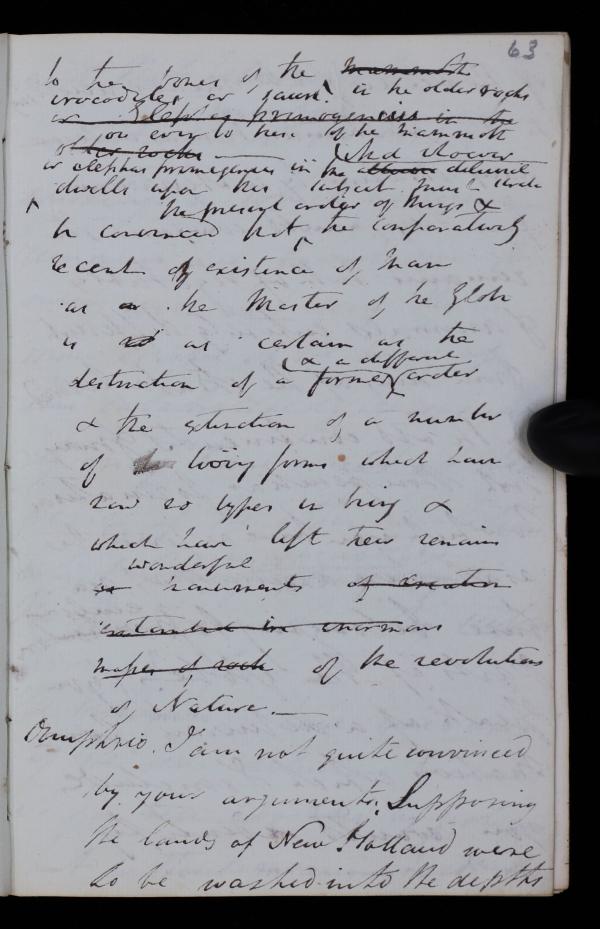 63
to the bones of the mammoth
crocodiles or sauri in the older rocks
or Elephas primogenius in the
or even to those of the mammoth
older rocks —
or elephas primogenius in the diluvial
And whoever
dwells upon this subject must
the present order of things &
be convinced that the comparatively
recent of existence of man
as the Master of the Globe
is as certain as the
& a different
destruction of a former order
& the extinction of a number
of living forms which have
now no types in being &
which have left their remains
wonderful
as monuments of creation
intended in enormous
masses of rock of the revolutions
of Nature. —
Onuphrio. I am not quite convinced
by your arguments. Supposing
the lands of New Holland were
to be washed into the depths